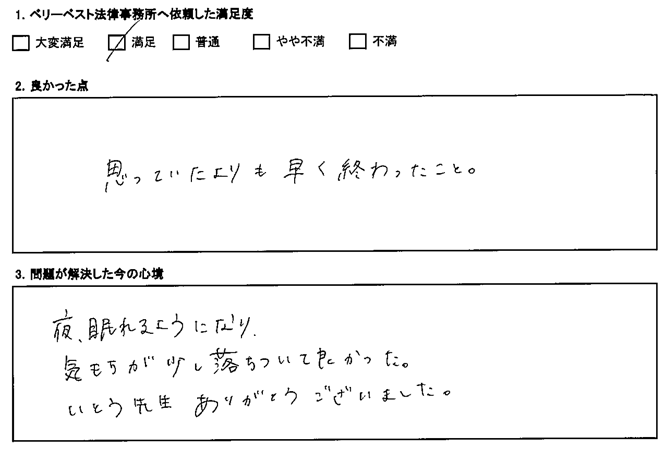 1. ベリーベスト法律事務所へ依頼した満足度
□ 大変満足 ☑ 満足 □ 普通 □ やや不満 □ 不満
2. 良かった点
思っていたよりも早く終わったこと。
3. 問題が解決した今の心境
夜、眠れるようになり、
気もちが少し落ちついて良かった。
いとう先生 ありがとうございました。